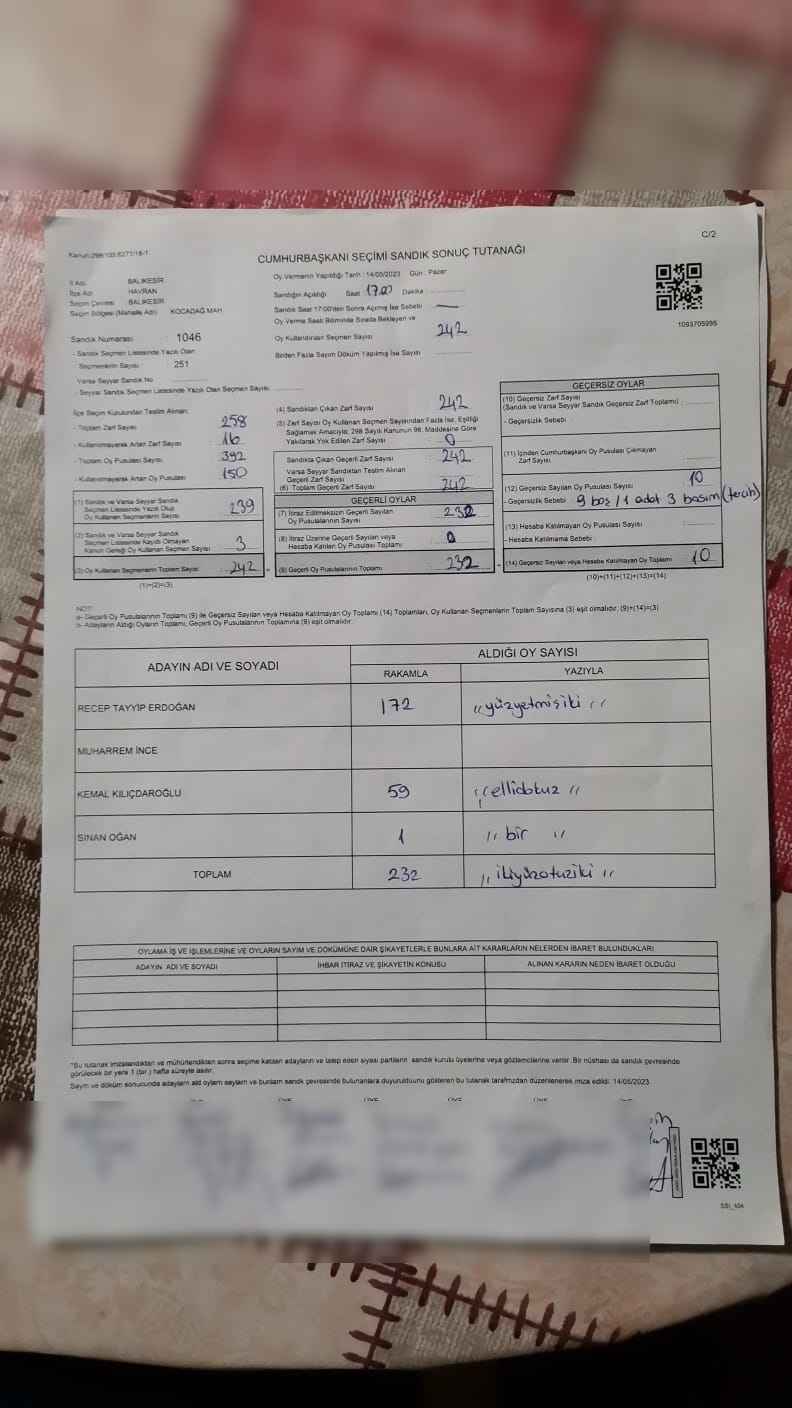 C/2
Kanun:298/103:6271/18-1
CUMHURBAŞKANI SEÇİMİ SANDIK SONUÇ TUTANAĞI
İl Adı BALIKESİR
İlçe Adı HAVRAN
Seçim Çevresi BALIKESİR
Seçim Bölgesi (Mahalle Adı) KOCADAĞ MAH.
Oy Vermenin Yapıldığı Tarih : 14/05/2023 Gün : Pazar
Sandığın Açıldığı Saat 17.00 Dakika :
Sandık Saat 17:00'den Sonra Açılmış İse Sebebi : —
Oy Verme Saati Bitiminde Sırada Bekleyen ve
Oy Kullandırılan Seçmen Sayısı 242
Birden Fazla Sayım Döküm Yapılmış İse Sayısı
1093705995
Sandık Numarası 1046
- Sandık Seçmen Listesinde Yazılı Olan
Seçmenlerin Sayısı 251
Varsa Seyyar Sandık No
- Seyyar Sandık Seçmen Listesinde Yazılı Olan Seçmen Sayısı
İlçe Seçim Kurulundan Teslim Alınan;
- Toplam Zarf Sayısı 258
- Kullanılmayarak Artan Zarf Sayısı 16
- Toplam Oy Pusulası Sayısı 392
- Kullanılmayarak Artan Oy Pusulası 150
(1) Sandık ve Varsa Seyyar Sandık
Seçmen Listesinde Yazılı Olup
Oy Kullanan Seçmenlerin Sayısı 239
(2) Sandık ve Varsa Seyyar Sandık
Seçmen Listesinde Kaydı Olmayan
Kanun Gereği Oy Kullanan Seçmen Sayısı 3
(3) Oy Kullanan Seçmenlerin Toplam Sayısı 242
(1)+(2)=(3)
(4) Sandıktan Çıkan Zarf Sayısı 242
(5) Zarf Sayısı Oy Kullanan Seçmen Sayısından Fazla İse, Eşitliği
Sağlamak Amacıyla; 298 Sayılı Kanunun 98. Maddesine Göre
Yakılarak Yok Edilen Zarf Sayısı 0
Sandıkta Çıkan Geçerli Zarf Sayısı 242
Varsa Seyyar Sandıktan Teslim Alınan
Geçerli Zarf Sayısı
(6) Toplam Geçerli Zarf Sayısı 242
GEÇERLİ OYLAR
(7) İtiraz Edilmeksizin Geçerli Sayılan
Oy Pusulalarının Sayısı 232
(8) İtiraz Üzerine Geçerli Sayılan veya
Hesaba Katılan Oy Pusulası Toplamı 0
(9) Geçerli Oy Pusulalarının Toplamı 232
GEÇERSİZ OYLAR
(10) Geçersiz Zarf Sayısı
(Sandık ve Varsa Seyyar Sandık Geçersiz Zarf Toplamı) :
- Geçersizlik Sebebi :
(11) İçinden Cumhurbaşkanı Oy Pusulası Çıkmayan
Zarf Sayısı
(12) Geçersiz Sayılan Oy Pusulası Sayısı 10
- Geçersizlik Sebebi : 9 boş / 1 adet 3 basım (tercih)
(13) Hesaba Katılmayan Oy Pusulası Sayısı :
- Hesaba Katılmama Sebebi :
(14) Geçersiz Sayılan veya Hesaba Katılmayan Oy Toplamı 10
(10)+(11)+(12)+(13)=(14)
NOT:
a- Geçerli Oy Pusulalarının Toplamı (9) ile Geçersiz Sayılan veya Hesaba Katılmayan Oy Toplamı (14) Toplamları, Oy Kullanan Seçmenlerin Toplam Sayısına (3) eşit olmalıdır. (9)+(14)=(3)
b- Adayların Aldığı Oyların Toplamı, Geçerli Oy Pusulalarının Toplamına (9) eşit olmalıdır.
ADAYIN ADI VE SOYADI ALDIĞI OY SAYISI
RAKAMLA YAZIYLA
RECEP TAYYİP ERDOĞAN 172 ,,yüzyetmişiki ,,
MUHARREM İNCE
KEMAL KILIÇDAROĞLU 59 ,,ellidokuz ,,
SİNAN OĞAN 1 ,, bir ,,
TOPLAM 232 ,, ikiyüzotuziki ,,
OYLAMA İŞ VE İŞLEMLERİNE VE OYLARIN SAYIM VE DÖKÜMÜNE DAİR ŞİKAYETLERLE BUNLARA AİT KARARLARIN NELERDEN İBARET BULUNDUKLARI
ADAYIN ADI VE SOYADI İHBAR İTİRAZ VE ŞİKAYETİN KONUSU ALINAN KARARIN NEDEN İBARET OLDUĞU
*Bu tutanak imzalandıktan ve mühürlendikten sonra seçime katılan adayların ve talep eden siyasi partilerin sandık kurulu üyelerine veya gözlemcilerine verilir. Bir nüshası da sandık çevresinde
görülecek bir yere 1 (bir ) hafta süreyle asılır.
Sayım ve döküm sonucunda adayların aldığı oyların sayısını ve bunların sandık çevresinde bulunanlara duyurulduğunu gösteren bu tutanak tarafımızdan düzenlenerek imza edildi. 14/05/2023